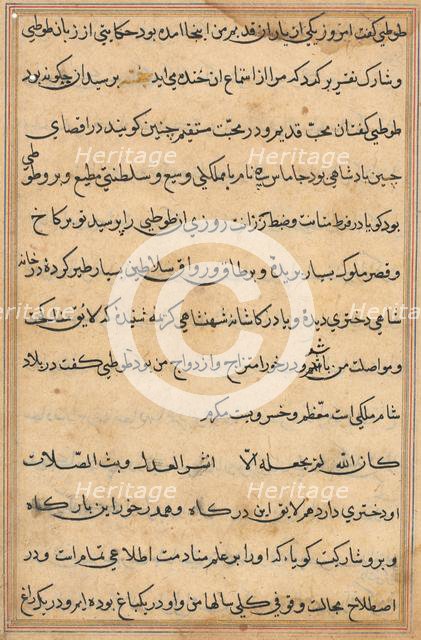 طوطی کفت امروز یکی از یاران قدیم من اینجا امده بود حکایتی از زبان طوطی
و شارک تقریر کرد که مرا از استماع ان خنده می اید پرسید از چکونه بود
طوطی کفت ان محب قدیم و در محبت مستقیم چنین کویند در اقصای
چین پادشاهی بود جاماس نام با مملکتی وسیع و سلطنتی مطیع و برو طوطی
بود کویا در فرط متانت و ضبط رزانت روزی از طوطی را پرسید تو بر کاخ
و قصر ملوک بسیار پریدهٔ و بر طاق و رواق سلاطین بسیار طیر کردهٔ در خانه
شاهی دختری دیدهٔ و یا در کاشانه شهنشاهی کریمه شنیدهٔ که لایق
و مواصلت من باشد و در خور امتزاج و ازدواج من بود طوطی کفت در بلاد
شام ملکی است معظم و خسرویست مکرم
کان الله لم یجعله الا انشر العدل و بث الصلات
او دختری دارد هم لایق این درکاه و هم در خور این بارکاه
و برو شارکیست کویاء که او را بر علم منادمت اطلاعی تمام است و در
اصطلاح مجالست وقوفی کلی سالها من و او در یک باغ بوده ایم و در یک راغ
Heritage
Heritage
Heritage
Heritage
Heritage
Heritage